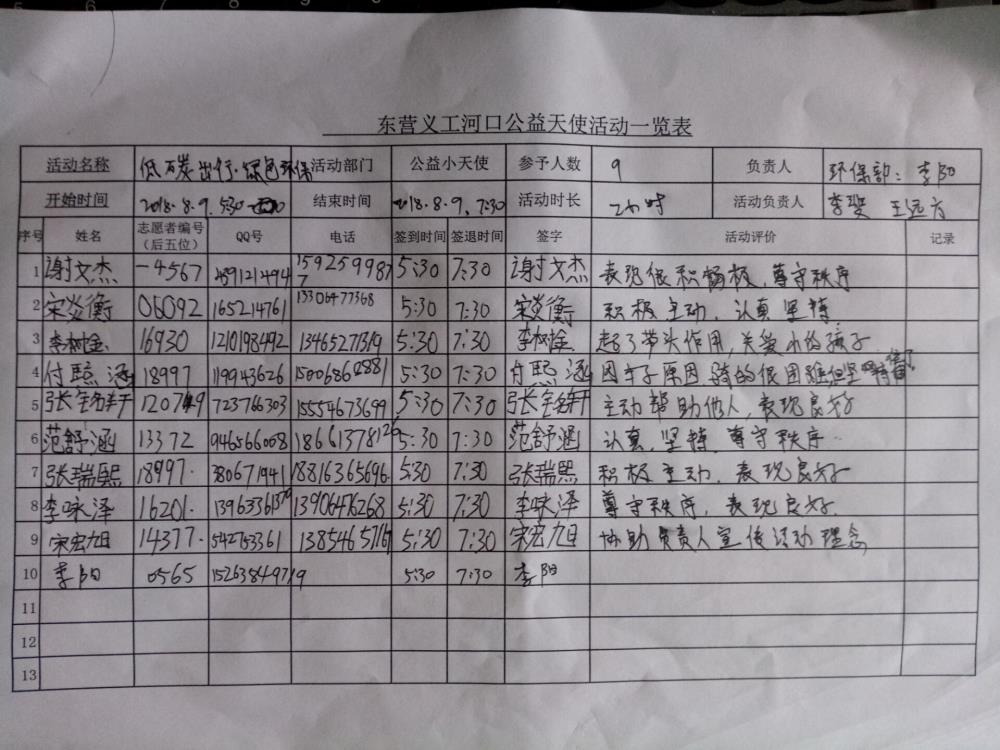 东营义工河口公益天使活动一览表
活动名称 低碳出行·绿色环保 活动部门 公益小天使 参予人数 9 负责人 环保部：李阳
开始时间 2018.8.9. 5:30 结束时间 2018.8.9, 7:30 活动时长 2小时 活动负责人 李斐 王远方
序号 姓名 志愿者编号（后五位） QQ号 电话 签到时间 签退时间 签字 活动评价 记录
1 谢文杰 -4567 15925999877 5:30 7:30 谢文杰 表现很积极，尊守秩序
2 宋炎衡 06092 165214761 13306477368 5:30 7:30 宋炎衡 积极主动，认真坚持
3 16930 1210193492 13465271319 5:30 7:30 起了带头作用，关爱小的孩子
4 付熙涵 18997 119943626 5:30 7:30 付熙涵 因车子原因骑的很困难但坚持
5 723766303 15554673699 5:30 7:30 主动帮助他人，表现良好
6 范舒涵 13372 946566008 5:30 7:30 范舒涵 认真，坚持，尊守秩序
7 张瑞熙 18997. 380671941 18816365696 5:30 7:30 张瑞熙 积极主动，表现良好
8 李咏泽 16201. 13906476268 5:30 7:30 李咏泽 尊守秩序，表现良好.
9 宋宏旭 14377. 542753361 13854657167 5:30 7:30 宋宏旭 协助负责人宣传活动理念
10 李阳 0565 15263849719 5:30 7:30 李阳
11
12
13